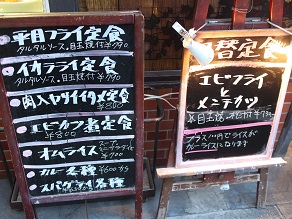 平目フライ定食
タルタルソース、目玉焼付 ¥790
イカフライ定食
タルタルソース、目玉焼付 ¥790
肉入ヤサイイタメ定食
¥800
エビカツ煮定食
¥800
オムライス
スープ
ミニサラダ付
¥700
カレー各種
¥600から
スパゲティ各種
日替定食
エビフライ
と
メンチカツ
目玉焼
プラス
円でライスが
カレーライスになります